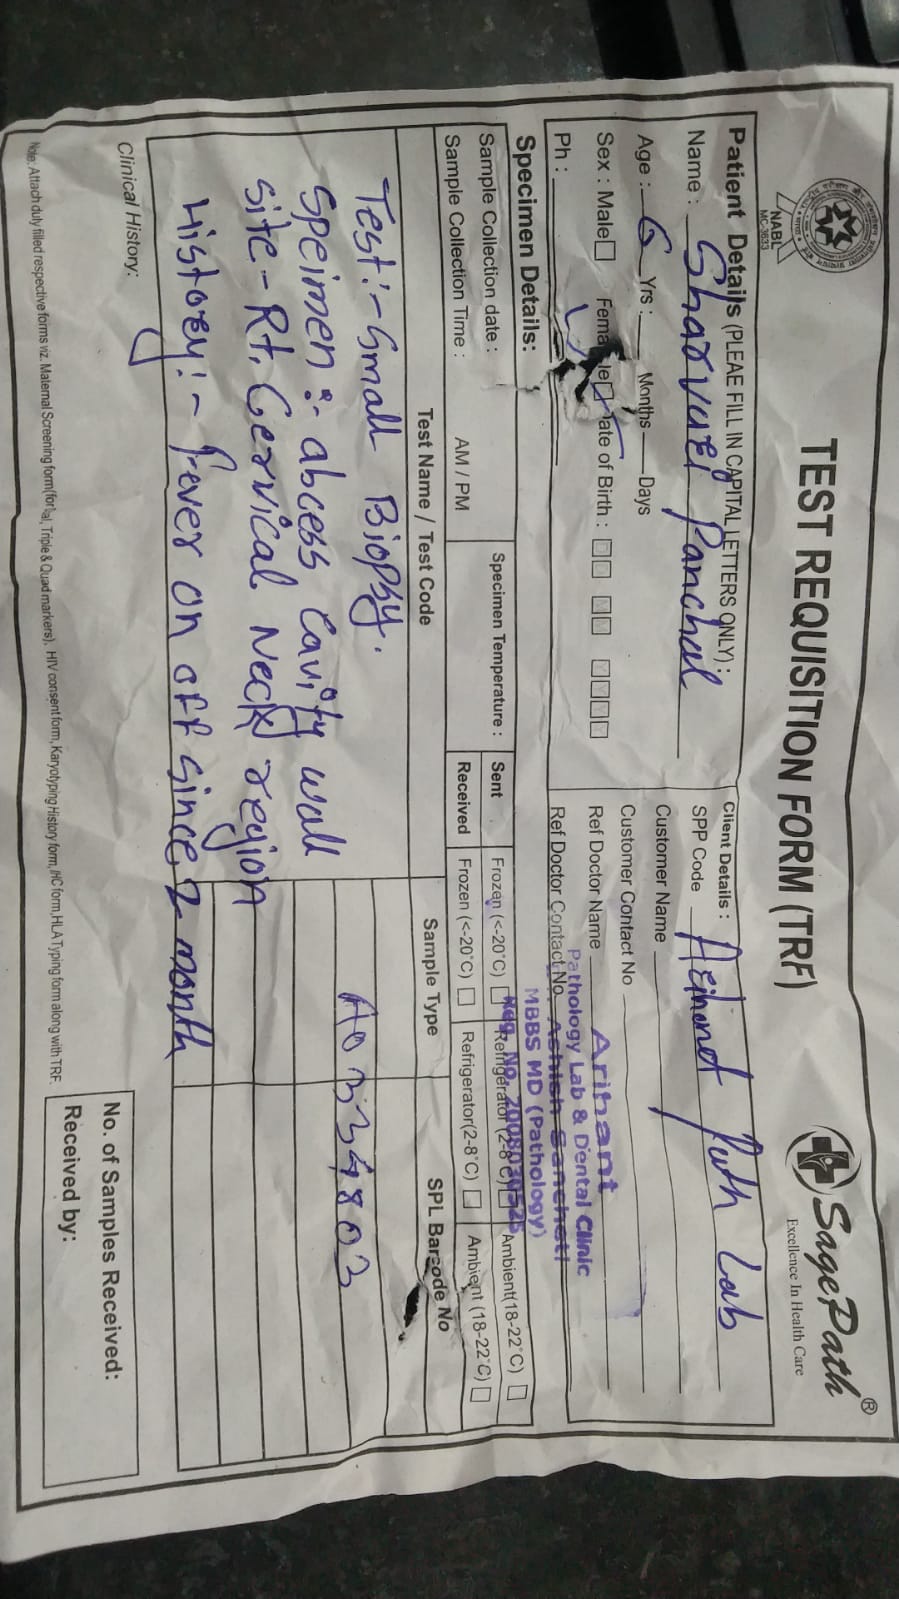 NABL
MC-3633
TEST REQUISITION FORM (TRF)
SagePath®
Excellence In Health Care
Patient Details (PLEAE FILL IN CAPITAL LETTERS ONLY) :
Name : Sharvuri Panchal
Age : 6 Yrs : Months Days
Sex : Male Female Date of Birth :
Ph :
Client Details :
SPP Code Arihant Path Lab
Customer Name
Customer Contact No
Ref Doctor Name
Ref Doctor Contact No
Arihant
Pathology Lab & Dental Clinic
Ashish Sancheti
MBBS MD (Pathology)
Reg. No.
Specimen Details:
Sample Collection date :
Sample Collection Time : AM / PM
Specimen Temperature :
Sent Frozen (<-20°C) Refrigerator (2-8°C) Ambient(18-22°C)
Received Frozen (<-20°C) Refrigerator(2-8°C) Ambient (18-22°C)
Test Name / Test Code Sample Type SPL Barcode No
Test:- Small Biopsy.
A0334803
Speimen :- abcess Cavity wall
Site - Rt. Cervical Neck region
History:- Fever on off since 2 month
Clinical History:
No. of Samples Received:
Received by:
Note: Attach duly filled respective forms viz. Maternal Screening form(for Triple & Quad markers). HIV consent form, Karyotyping History form, IHC form, HLA Typing form along with TRF.